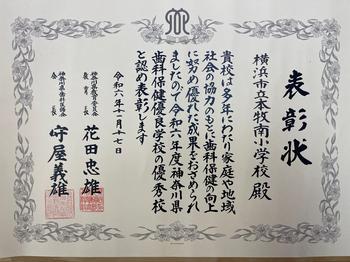 表彰状
横浜市立本牧南小学校 殿
貴校は多年にわたり家庭や地域
社会の協力のもとに歯科保健の向上
に努め優れた成果をおさめられ
ましたので令和六年度神奈川県
歯科保健優良学校の優秀校
と認め表彰します
令和六年十一月十七日
神奈川県教育委員会
教育長 花田忠雄
神奈川県歯科医師会
会長 守屋義雄